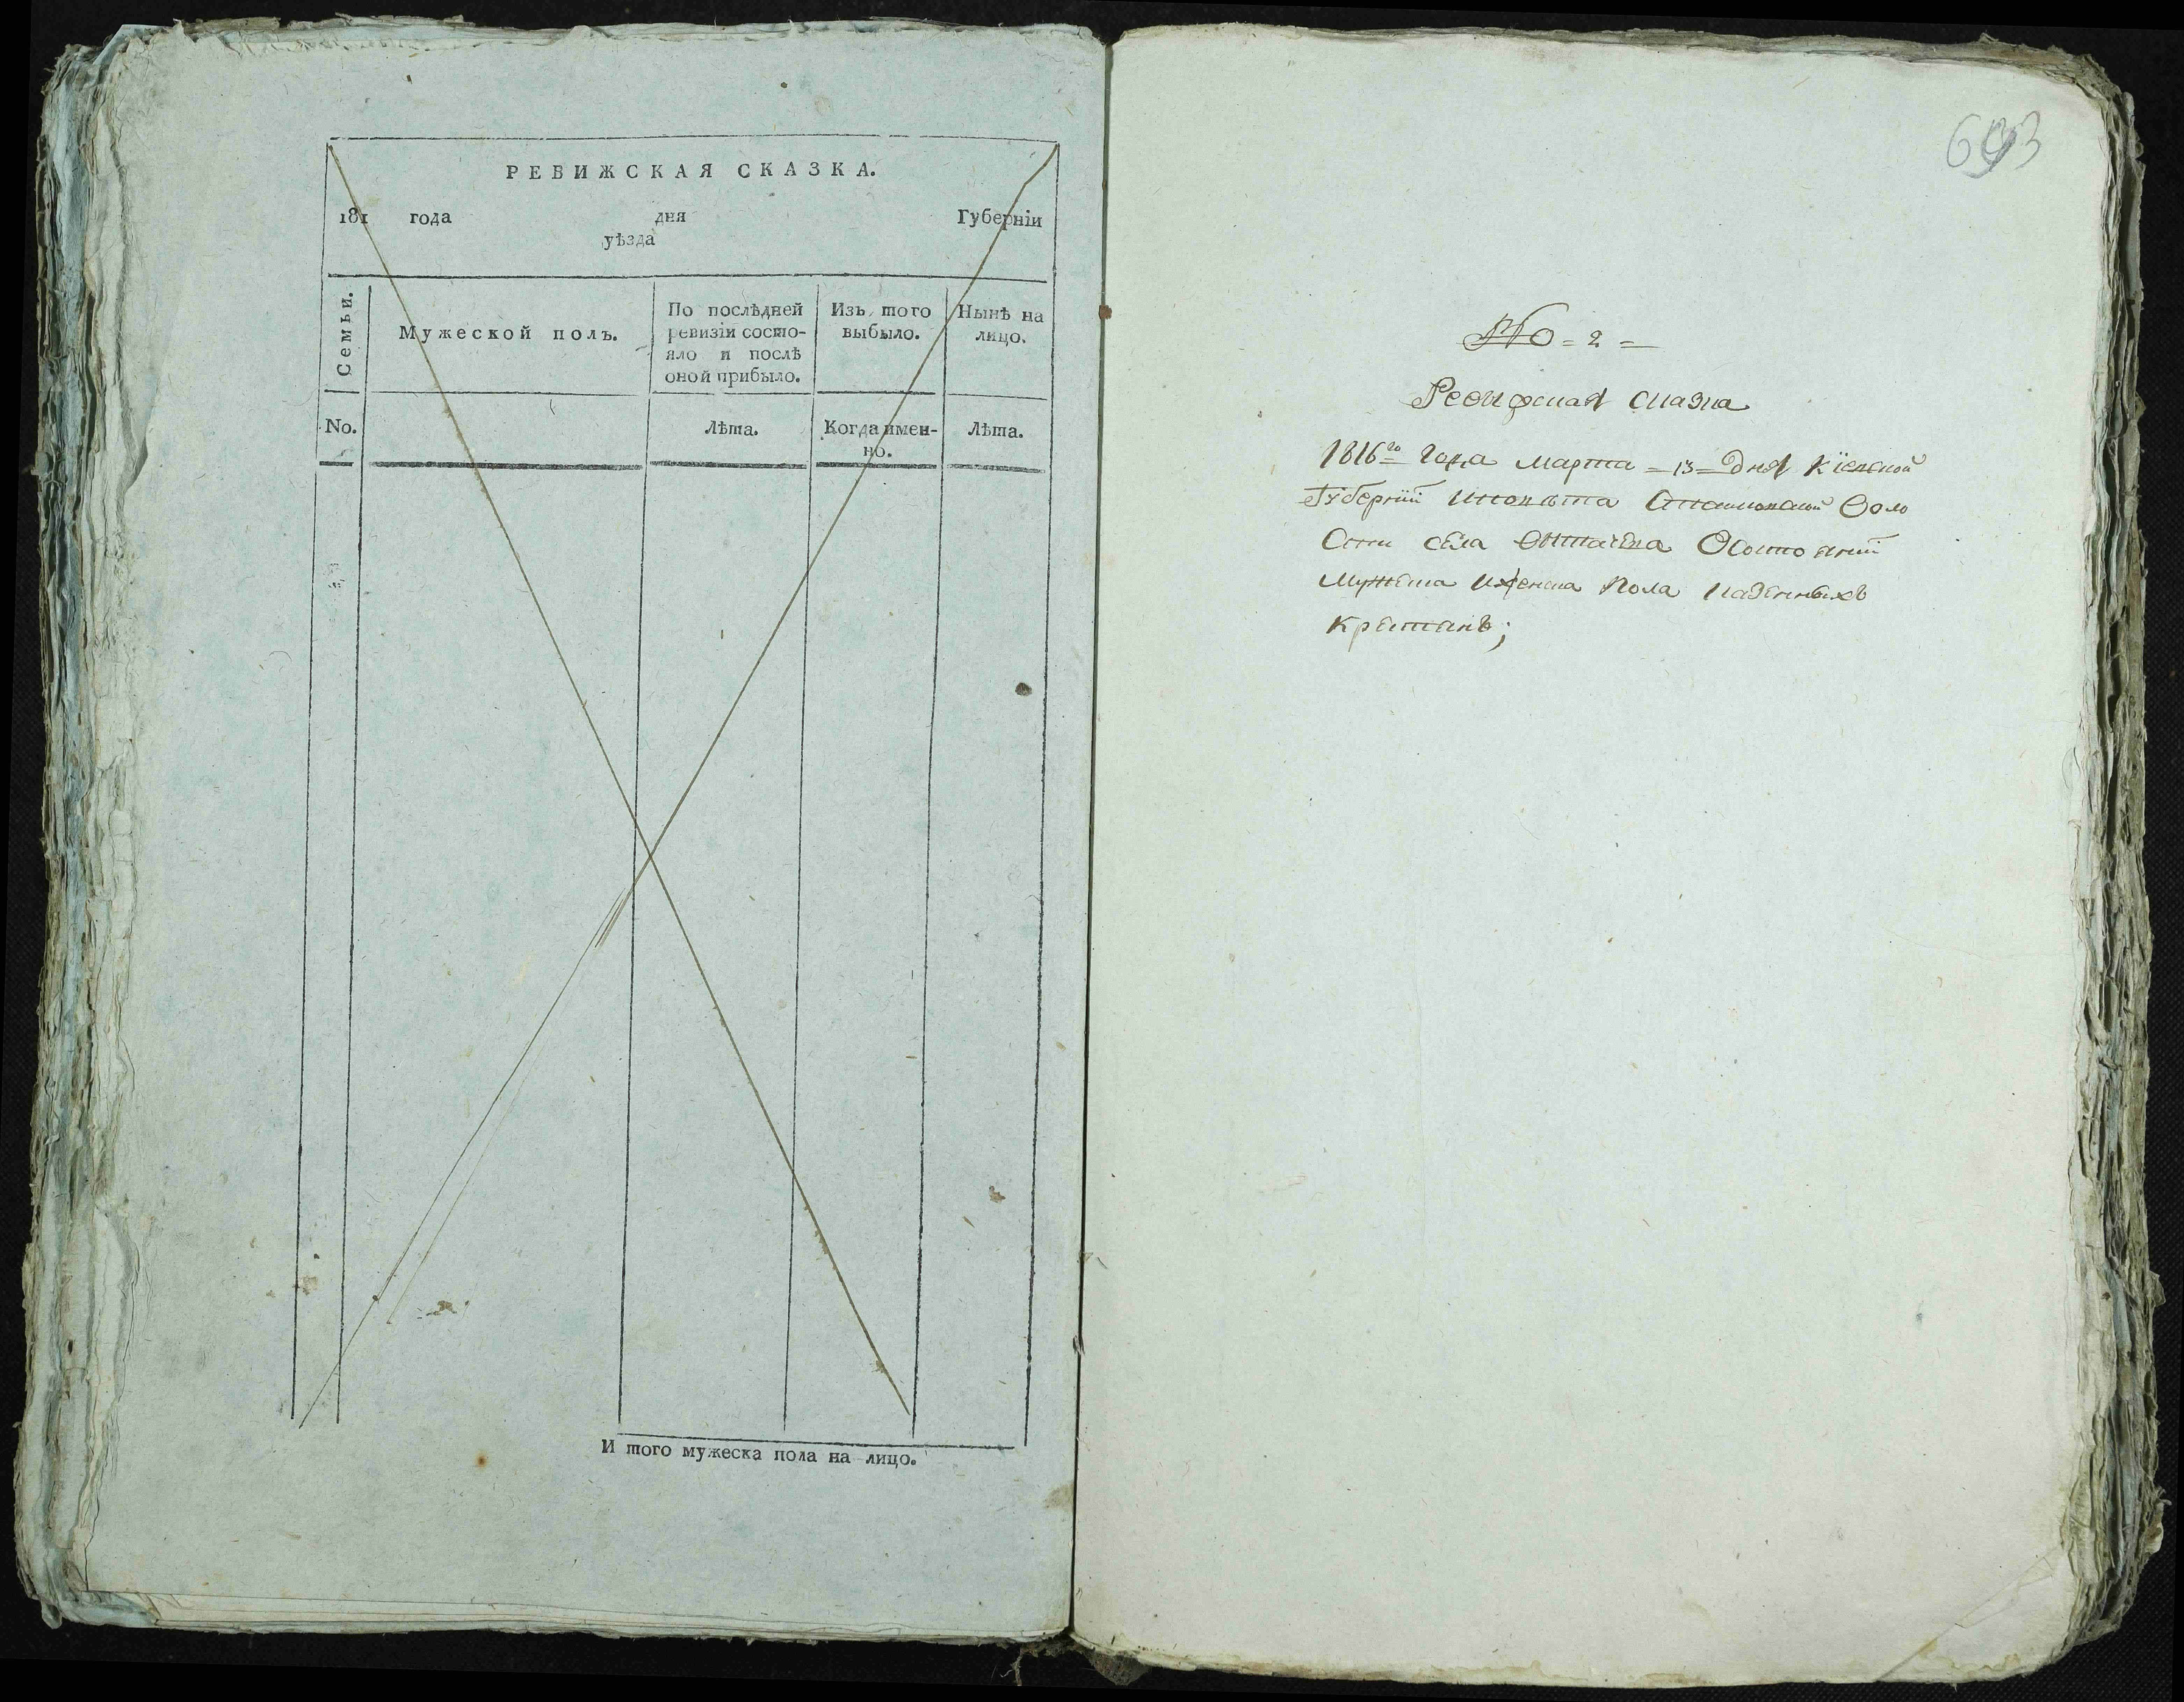 РЕВИЖСКАЯ СКАЗКА.
181 года дня Губерніи
уѣзда
Семьи.
Мужеской полъ.
По послѣдней ревизіи состо-
яло и послѣ
оной прибыло.
Изъ того
выбыло.
Нынѣ на
лицо.
No.
Лѣта.
Когда имен-
но.
Лѣта.
И того мужеска пола на лицо.
No = 2 =
Ревижская сказка
1816го Года Марта = 13 = Дня Кіевской
Губерніи Воло
сти села Витачева Осостояніи
Мужеска Иженска Пола
Крестянъ;